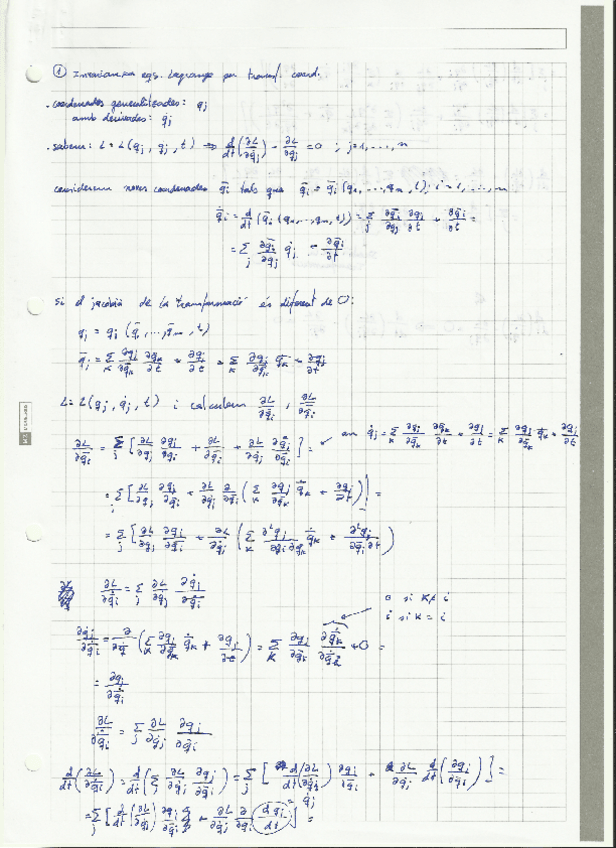 ① Invariancia eqs. Lagrange per transf. coord.
· coordenades generalitzades: qj
amb derivades: q̇j
· sabem: L = L(qj, q̇j, t) ⇒ d/dt(∂L/∂q̇j) - ∂L/∂qj = 0 ; j=1,...,n
considerem noves coordenades q̄i tals que q̄i = q̄i(q1,...,qn,t); i=1,...,n
q̄̇i = d/dt(q̄i(q1,...,qn,t)) = Σj ∂q̄i/∂qj ∂qj/∂t + ∂q̄i/∂t =
= Σj ∂q̄i/∂qj q̇j + ∂q̄i/∂t
Si el jacobià de la transformació és diferent de 0:
qj = qj(q̄1,...,q̄n,t)
q̇j = Σk ∂qj/∂q̄k ∂q̄k/∂t + ∂qj/∂t = Σk ∂qj/∂q̄k q̄̇k + ∂qj/∂t
L = L(qj, q̇j, t) i calculem ∂L/∂q̄i , ∂L/∂q̄̇i
∂L/∂q̄i = Σj [∂L/∂qj ∂qj/∂q̄i + ∂L/∂q̇j ∂q̇j/∂q̄i] =
on q̇j = Σk ∂qj/∂q̄k ∂q̄k/∂t + ∂qj/∂t = Σk ∂qj/∂q̄k q̄̇k + ∂qj/∂t
= Σj [∂L/∂qj ∂qj/∂q̄i + ∂L/∂q̇j ∂/∂q̄i (Σk ∂qj/∂q̄k q̄̇k + ∂qj/∂t)] =
= Σj [∂L/∂qj ∂qj/∂q̄i + ∂L/∂q̇j (Σk ∂²qj/∂q̄i∂q̄k q̄̇k + ∂²qj/∂q̄i∂t)
∂L/∂q̄̇i = Σj ∂L/∂q̇j ∂q̇j/∂q̄̇i
0 si k≠i
1 si k=i
∂q̇j/∂q̄̇i = ∂/∂q̄̇i (Σk ∂qj/∂q̄k q̄̇k + ∂qj/∂t) = Σk ∂qj/∂q̄k ∂q̄̇k/∂q̄̇i + 0 =
= ∂qj/∂q̄i
∂L/∂q̄̇i = Σj ∂L/∂q̇j ∂qj/∂q̄i
d/dt(∂L/∂q̄̇i) = d/dt(Σj ∂L/∂q̇j ∂qj/∂q̄i) = Σj [d/dt(∂L/∂q̇j) ∂qj/∂q̄i + ∂L/∂q̇j d/dt(∂qj/∂q̄i)] =
= q̇j
= Σj [d/dt(∂L/∂q̇j) ∂qj/∂q̄i + ∂L/∂q̇j ∂/∂q̄i (dqj/dt)] =